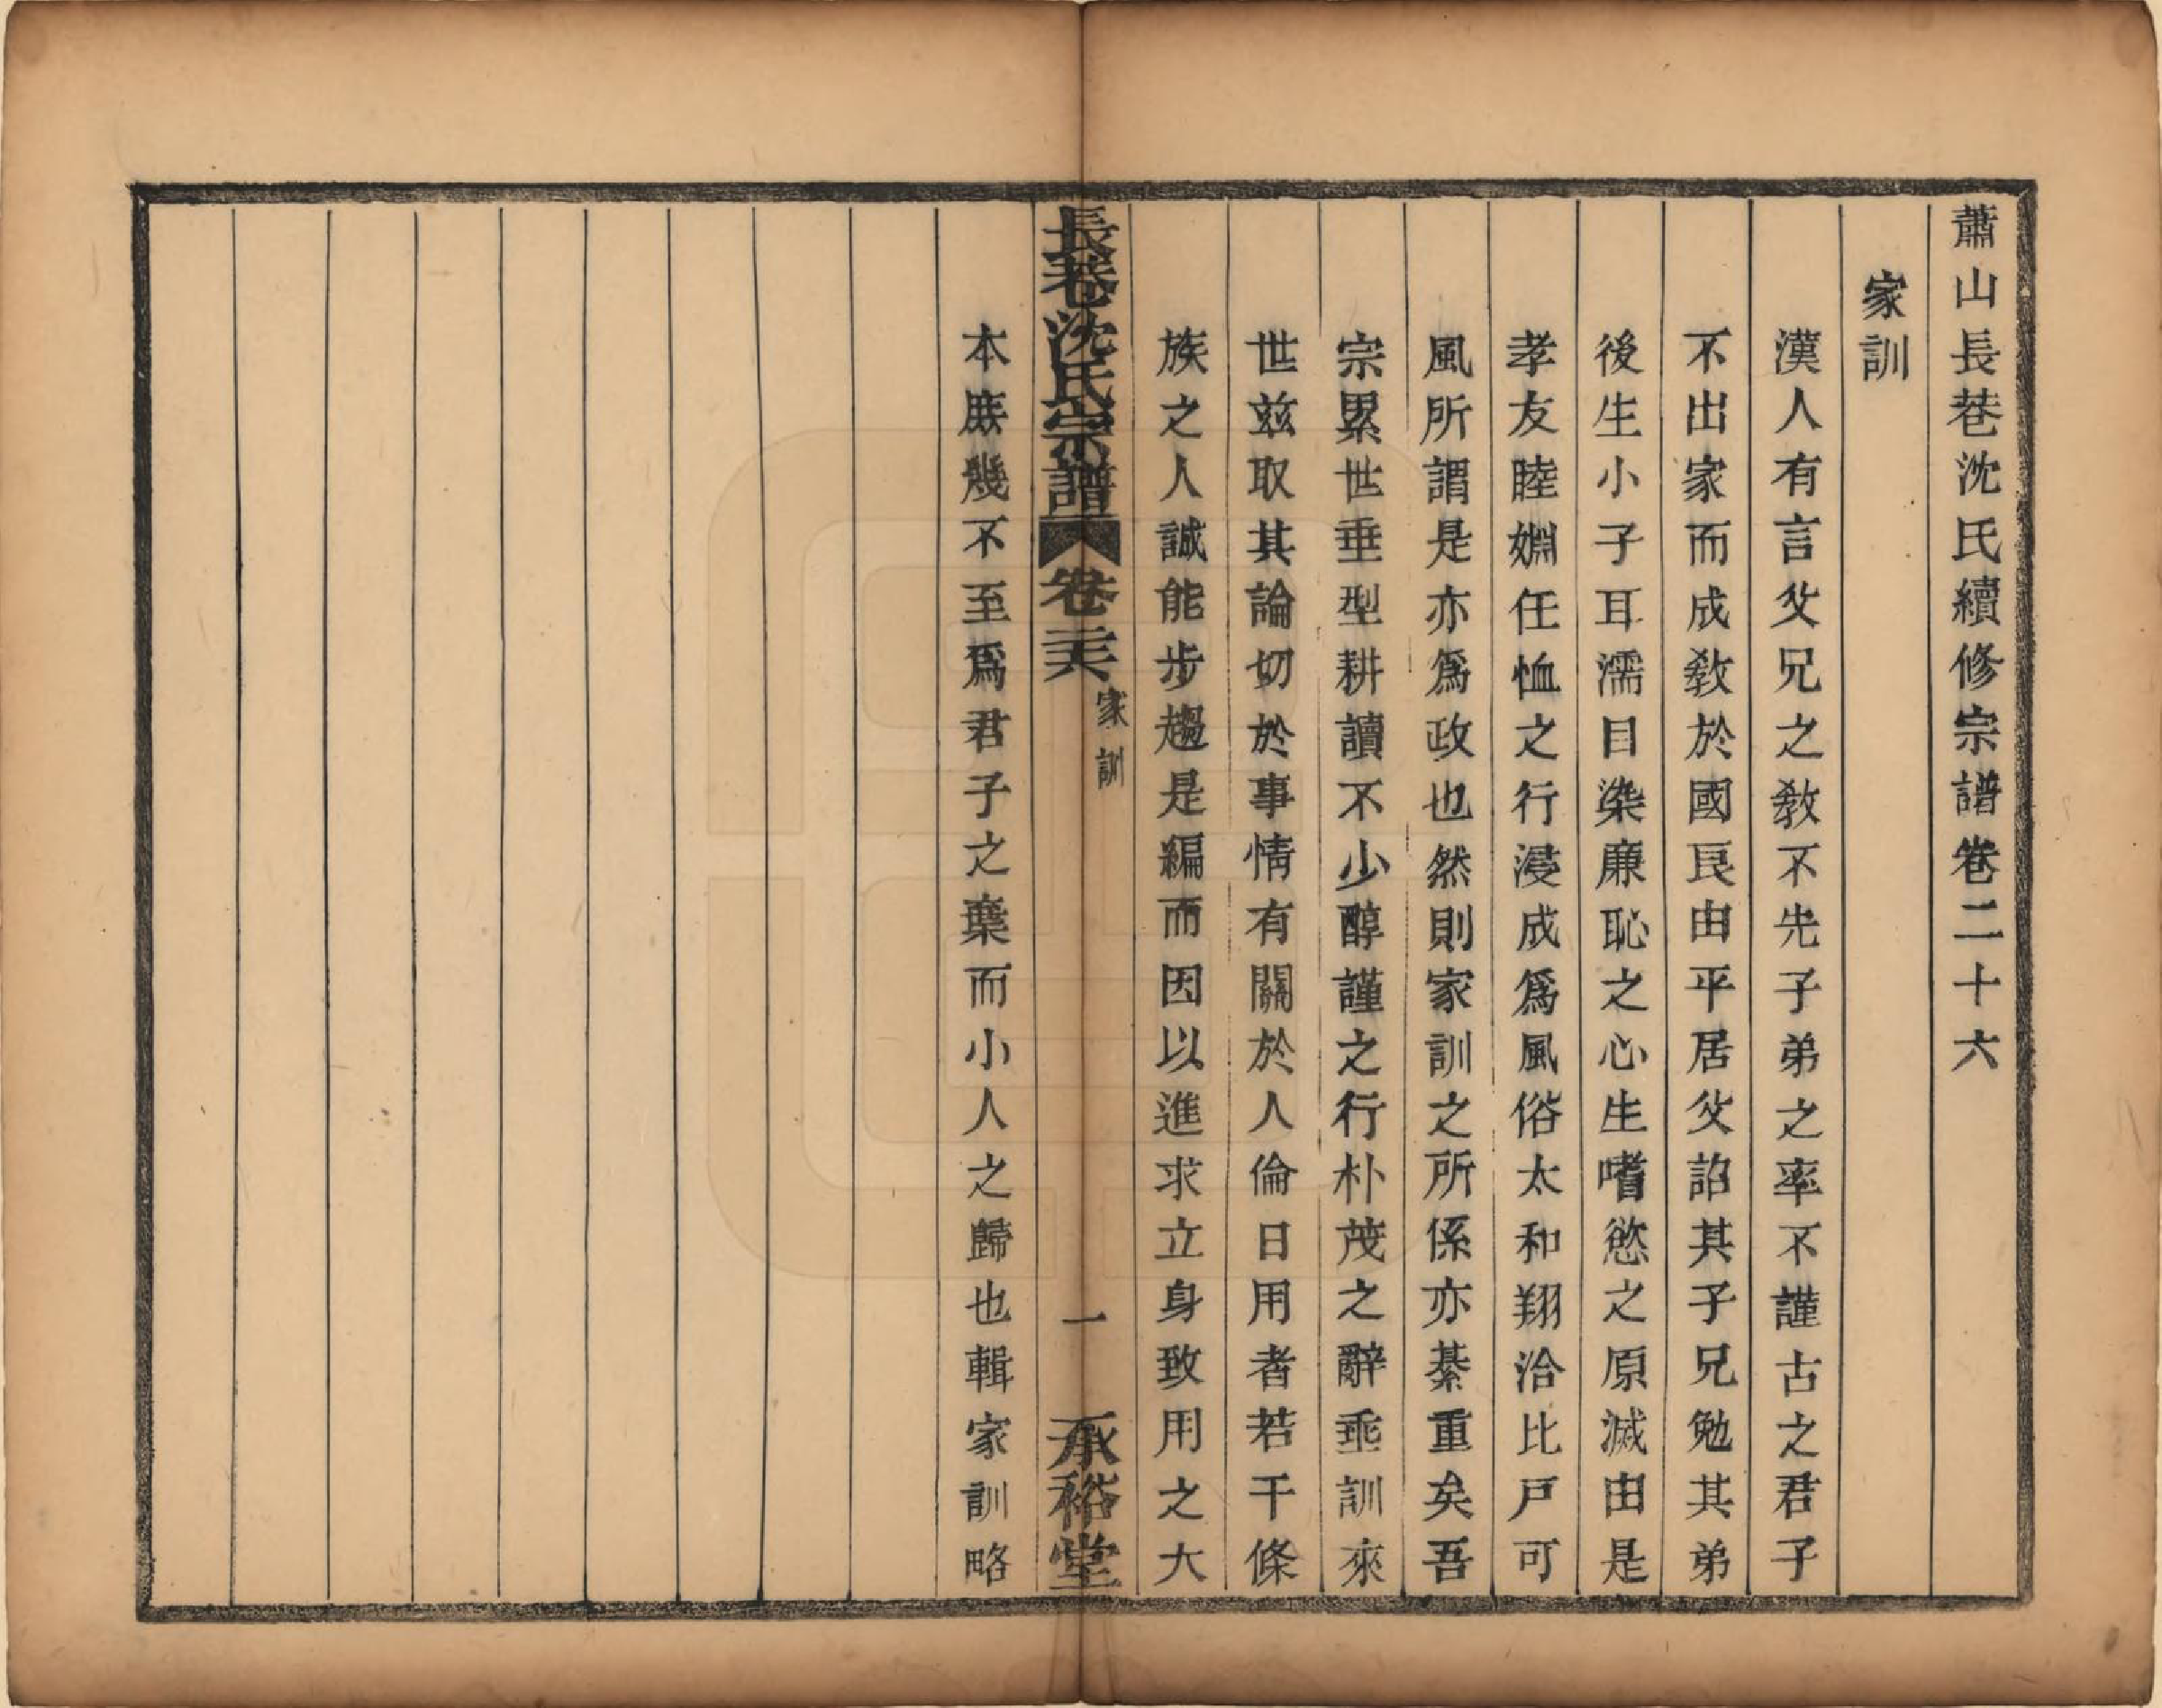 蕭山長巷沈氏續修宗譜卷二十六
家訓
漢人有言父兄之教不先子弟之率不謹古之君子
不出家而成教於國良由平居父詔其子兄勉其弟
後生小子耳濡目染廉恥之心生嗜慾之原滅由是
孝友睦婣任恤之行浸成爲風俗太和翔洽比戸可
風所謂是亦爲政也然則家訓之所係亦綦重矣吾
宗累世垂型耕讀不少醇謹之行朴茂之辭垂訓來
世玆取其論切於事情有關於人倫日用者若干條
族之人誠能步趨是編而因以進求立身致用之大
長巷沈氏宗譜 卷二六 家訓 一 承裕堂
本庶幾不至爲君子之棄而小人之歸也輯家訓略